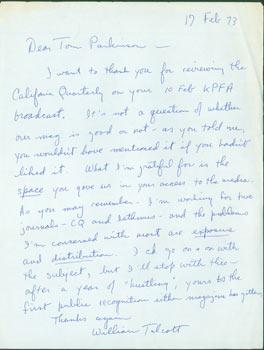 17 Feb 73
Dear Tom Parkinson —
I want to thank you for reviewing the
California Quarterly on your 10 Feb KPFA
broadcast. It's not a question of whether
our mag is good or not - as you told me,
you wouldn't have mentioned it if you hadn't
liked it. What I'm grateful for is the
space you gave us in your access to the media.
As you may remember - I'm working for two
journals - CQ and Isthmus - and the problems
I'm concerned with most are exposure
and distribution. I cd go on & on with
the subject, but I'll stop with this —
after a year of "hustling", yours is the
first public recognition either magazine has gotten.
Thanks again
William Talcott